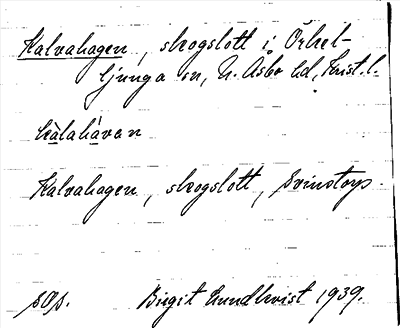 Kalvahagen, skogslott i Örkel-
ljunga sn, N. Åsbo hd, Krist. l.
kàlahávan
Kalvahagen, skogslott, Svinstorp.
Birgit Lundkvist 1939.